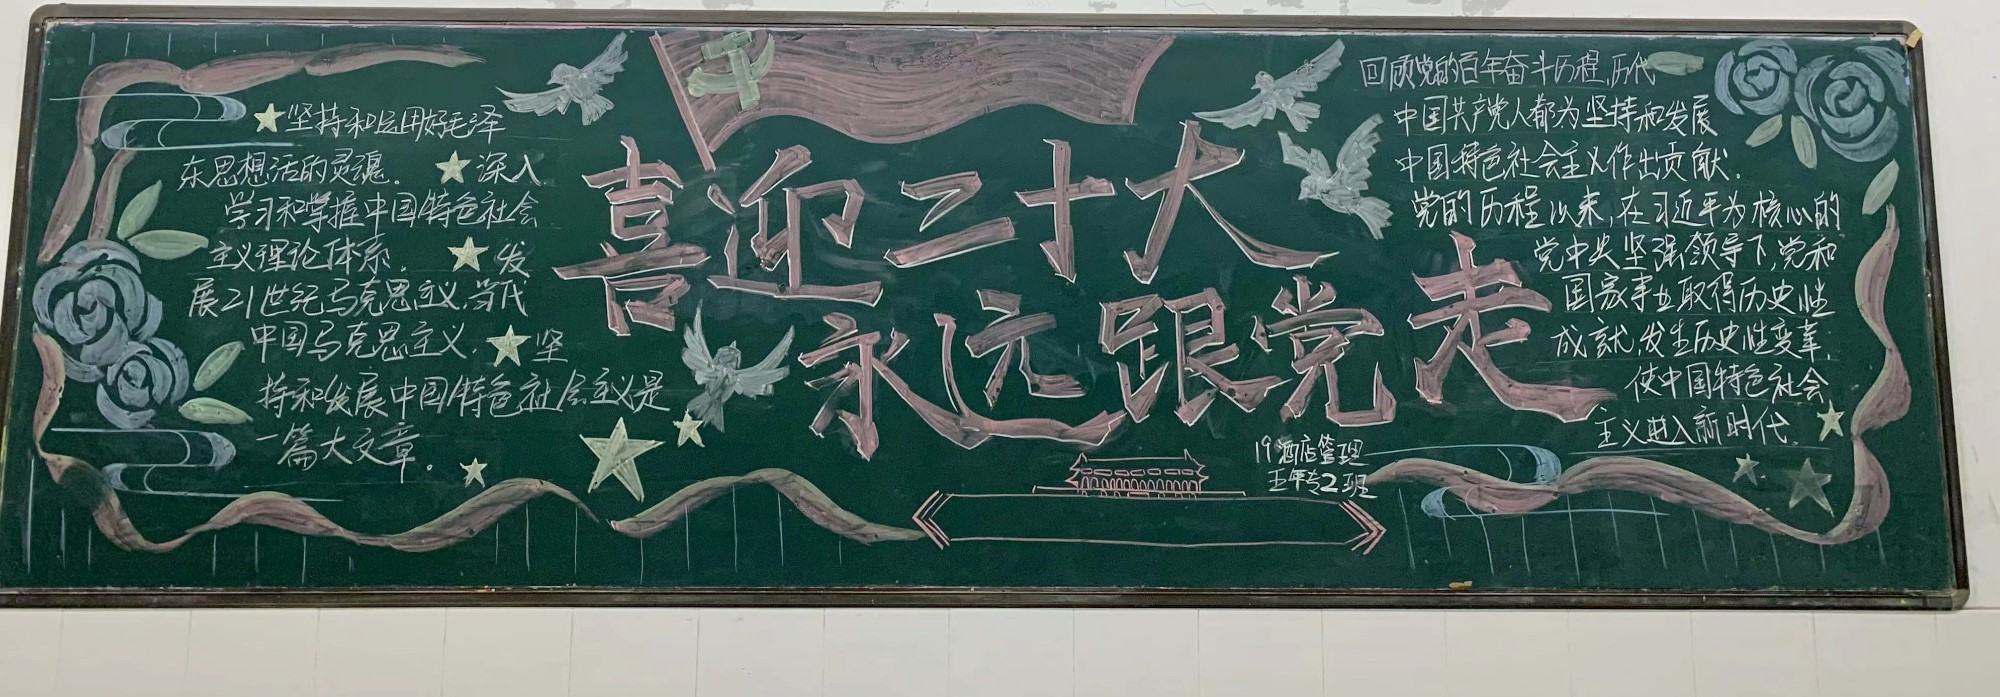 喜迎二十大
永远跟党走
坚持和运用好毛泽
东思想活的灵魂。 深入
学习和掌握中国特色社会
主义理论体系。 发
展21世纪马克思主义、当代
中国马克思主义。 坚
持和发展中国特色社会主义是
一篇大文章。
回顾党的百年奋斗历程,历代
中国共产党人都为坚持和发展
中国特色社会主义作出贡献。
党的历程以来,在习近平为核心的
党中央坚强领导下,党和
国家事业取得历史性
成就,发生历史性变革,
使中国特色社会
主义进入新时代。
19酒店管理
五年专2班